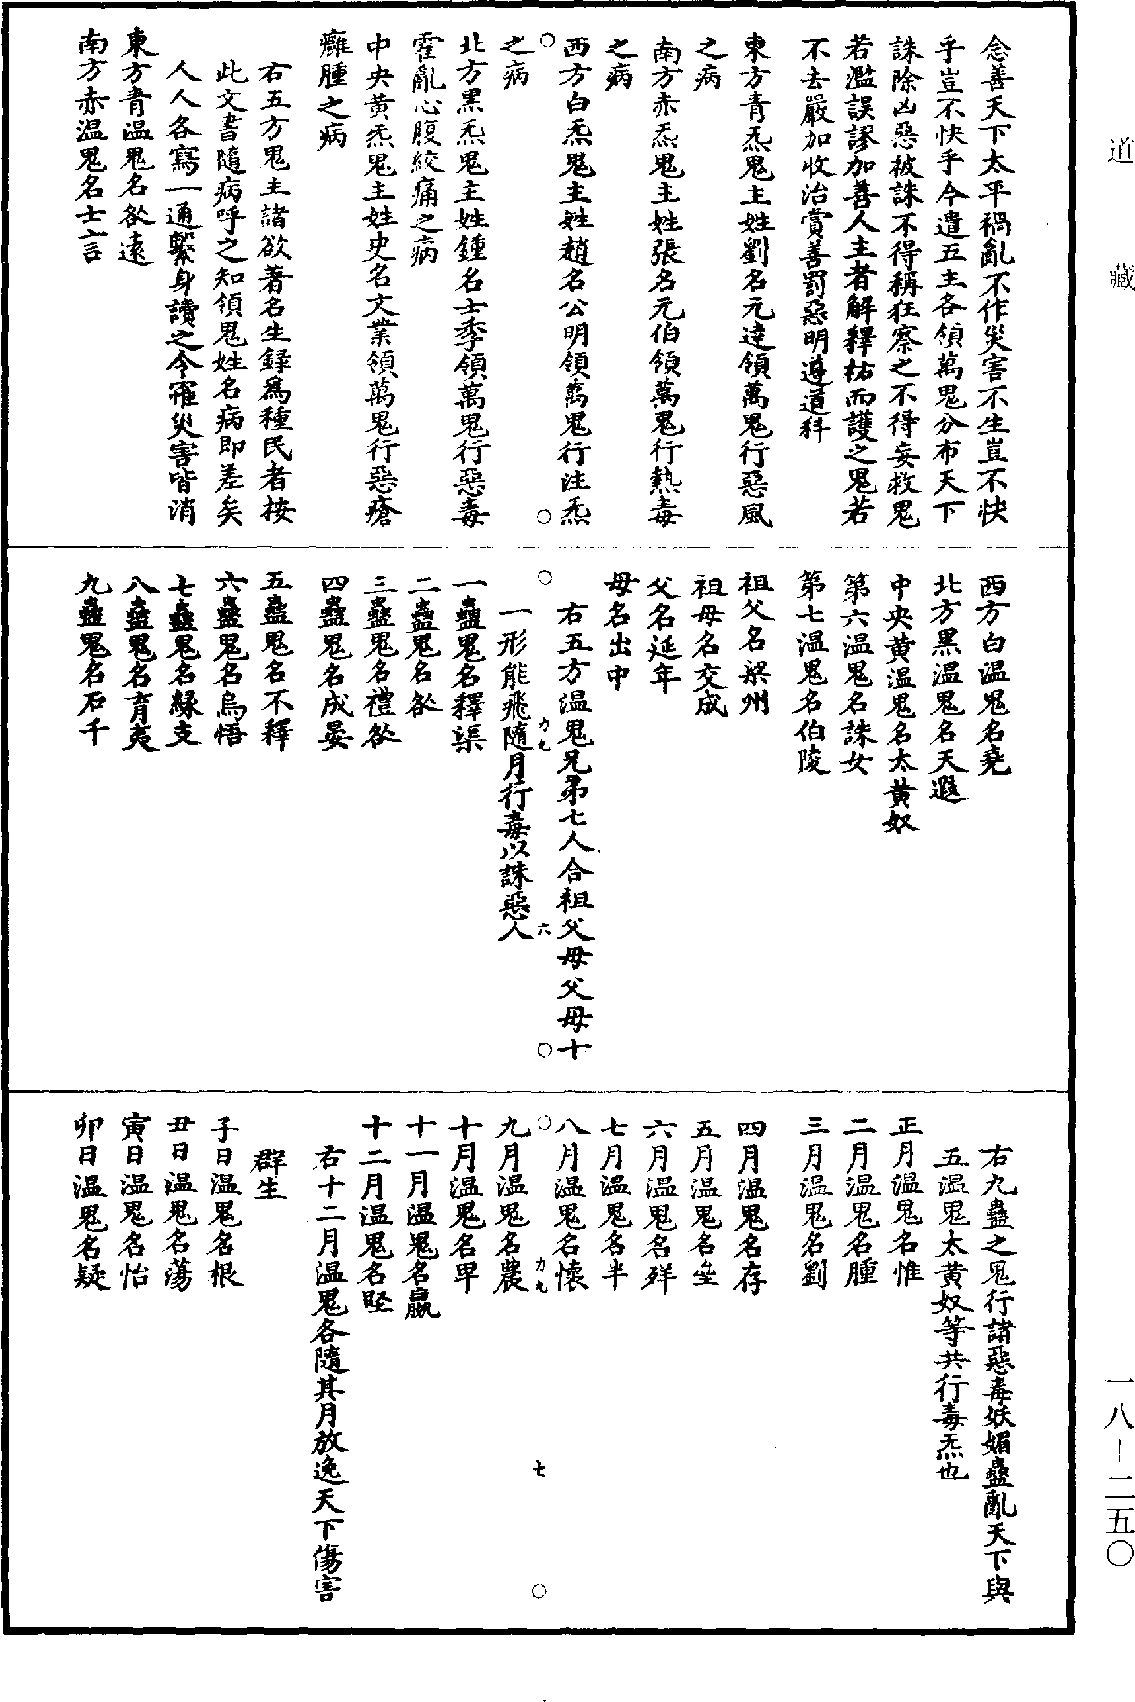 道藏
念善天下太平禍亂不作災害不生豈不快
乎豈不快乎今遣五主各領萬鬼分布天下
誅除凶惡被誅不得稱狂察之不得妄救鬼
若濫誤謬加善人主者解釋祐而護之鬼若
不去嚴加收治賞善罰惡明遵道科
東方青炁鬼主姓劉名元達領萬鬼行惡風
之病
南方赤炁鬼主姓張名元伯領萬鬼行熱毒
之病
西方白炁鬼主姓趙名公明領萬鬼行注炁
之病
北方黑炁鬼主姓鍾名士季領萬鬼行惡毒
霍亂心腹絞痛之病
中央黃炁鬼主姓史名文業領萬鬼行惡瘡
癰腫之病
右五方鬼主諸欲著名生録爲種民者按
此文書隨病呼之知領鬼姓名病即差矣
人人各寫一通繫身讀之令宿災害皆消
東方青温鬼名㕁遠
南方赤温鬼名士言
西方白温鬼名堯
北方黑温鬼名天遐
中央黃温鬼名太黃奴
第六温鬼名誅女
第七温鬼名伯陵
祖父名梁州
祖母名交成
父名延年
母名出中
右五方温鬼兄弟七人合祖父母父母十
力九 六
一形能飛隨月行毒以誅惡人
一蠱鬼名釋渠
二蠱鬼名㕁
三蠱鬼名禮㕁
四蠱鬼名成晏
五蠱鬼名不釋
六蠱鬼名烏悟
七蠱鬼名緑支
八蠱鬼名育夷
九蠱鬼名石千
右九蠱之鬼行諸惡毒妖媚蠱亂天下與
五温鬼太黃奴等共行毒炁也
正月温鬼名惟
二月温鬼名腫
三月温鬼名劉
四月温鬼名存
五月温鬼名壘
六月温鬼名鮮
七月温鬼名半
八月温鬼名懷
力九 七
九月温鬼名農
十月温鬼名卑
十一月温鬼名羸
十二月温鬼名堅
右十二月温鬼各隨其月放逸天下傷害
群生
子日温鬼名根
丑日温鬼名蕩
寅日温鬼名怡
卯日温鬼名疑
一八-二五〇